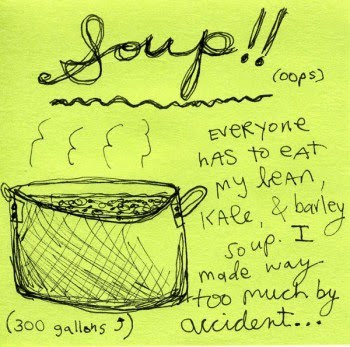 Soup!!
(oops)
EVERYONE
HAS TO EAT
MY bEAN,
KALE, & barley
soup. I
made way
too much by
accident...
(300 gallons ⤴)